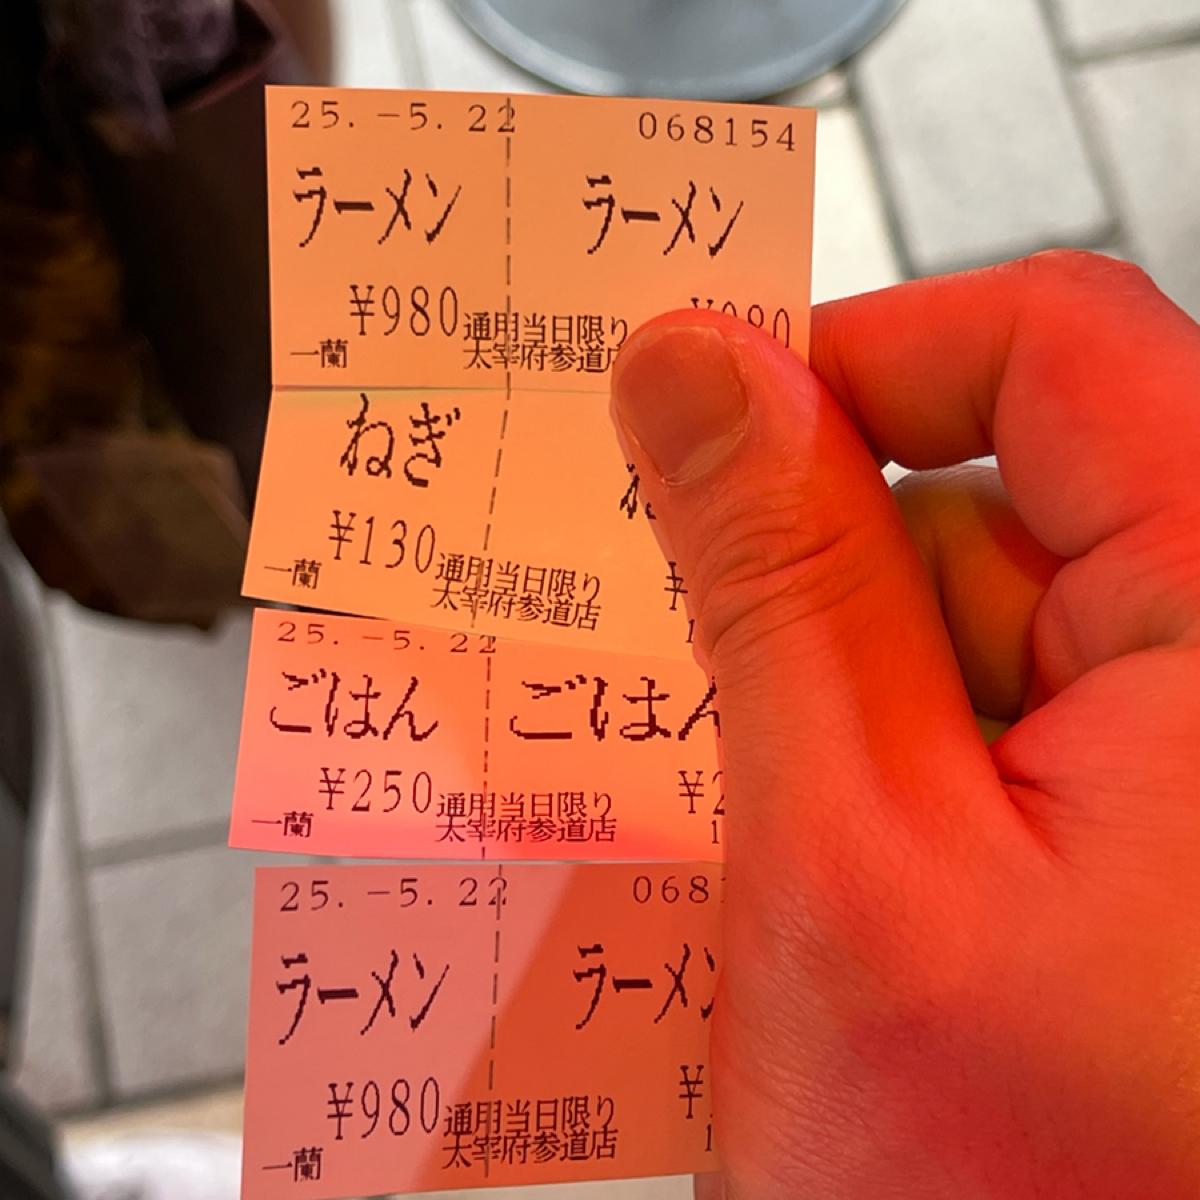 25.-5.22 068154
ラーメン ラーメン
¥980 ¥980
通用当日限り
一蘭 太宰府参道店
ねぎ
¥130 ¥
通用当日限り
一蘭 太宰府参道店 1
25.-5.22
ごはん ごはん
¥250 ¥2
通用当日限り
一蘭 太宰府参道店 1
25.-5.22 068
ラーメン ラーメン
¥980 ¥
通用当日限り
一蘭 太宰府参道店 1